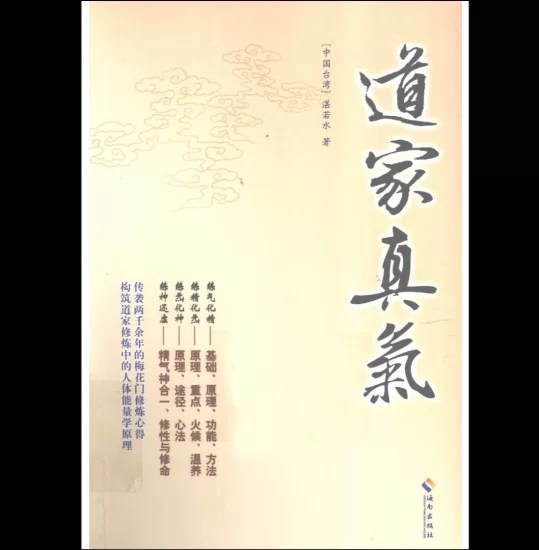 道家真氣
[中国台湾] 湛若水 著
练气化精——基础、原理、功能、方法
练精化炁——原理、重点、火候、温养
练炁化神——原理、途径、心法
练神还虚——精气神合一、修性与修命
传袭两千余年的梅花门修炼心得
构筑道家修炼中的人体能量学原理
海南出版社